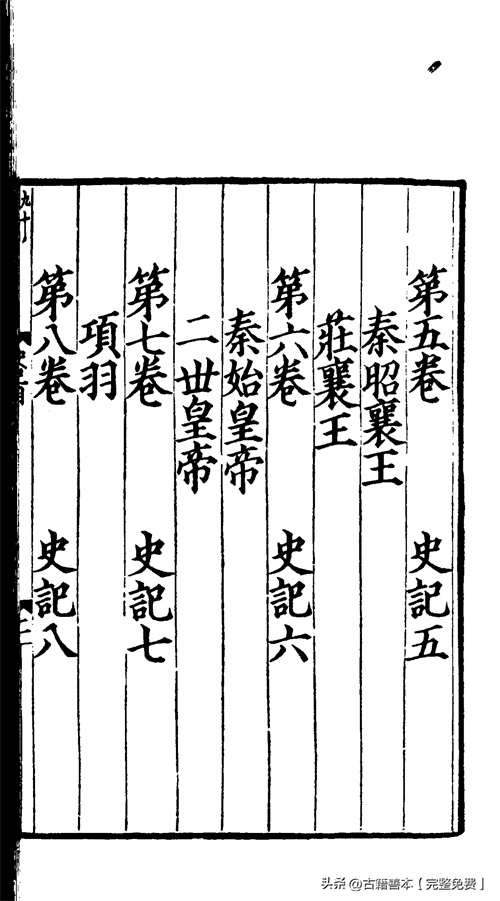 第五卷 史記五
秦昭襄王
莊襄王
第六卷 史記六
秦始皇帝
二世皇帝
第七卷 史記七
項羽
第八卷 史記八
九十
头条 @古籍善本【完整免费】